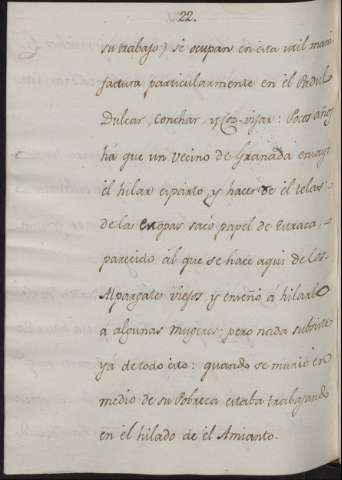 22.
su trabajo) se ocupan en esta util manu
factura particularmente en el Padul
Dulcar, Conchar, y Coz-vijar: Pocos años
há que un Vecino de Granada ensayó
el hilar esparto, y hacer de él telas:
de las estopas sacó papel de Estraza,
parecido al que se hace aqui de los
Alpargate viejos, y enseñó á hilarlo
a algunas mugeres; pero nada subsiste
yá de todo esto: quando se murió en
medio de su Pobreza estaba trabajando
en el hilado de el Amianto.